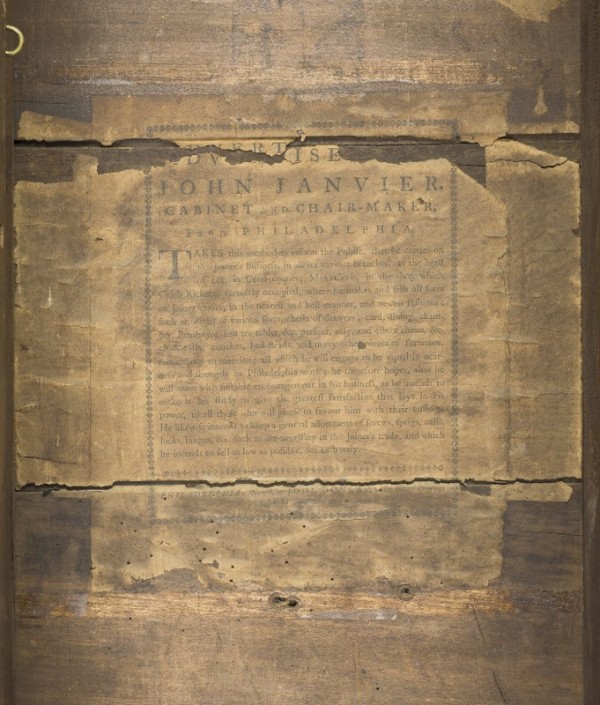 ADVERTISE
JOHN JANVIER,
CABINET AND CHAIR-MAKER,
From PHILADELPHIA,
TAKES this method to inform the Public, that he carries on
the Joiner's business, in all its various branches, at the
in Cecil-county, MARYLAND, in the shop which
Caleb Ricketts formerly occupied, where he makes and sells all sorts
of Joiner's work, in the neatest and best manner, and newest fashions;
such as desks of various sorts, chests of drawers, card, dining, cham-
and tea tables, &c. parlour, easy, and elbow chairs, set-
couches, bed-steads, and many other pieces of furniture,
too tedious to mention; all which he will engage to be equal in neat-
ness and strength to Philadelphia work; he therefore hopes, that he
will meet with suitable encouragement in his business, as he intends to
make it his study to give the greatest satisfaction that lays in his
power, to all those who will please to favour him with their custom.
He likewise intends keeping a general assortment of screws, sprigs, nails,
locks, hinges, &c. such as are necessary in the Joiner's trade, and which
he intends to sell as low as possible, for cash only.
PHILADELPHIA: